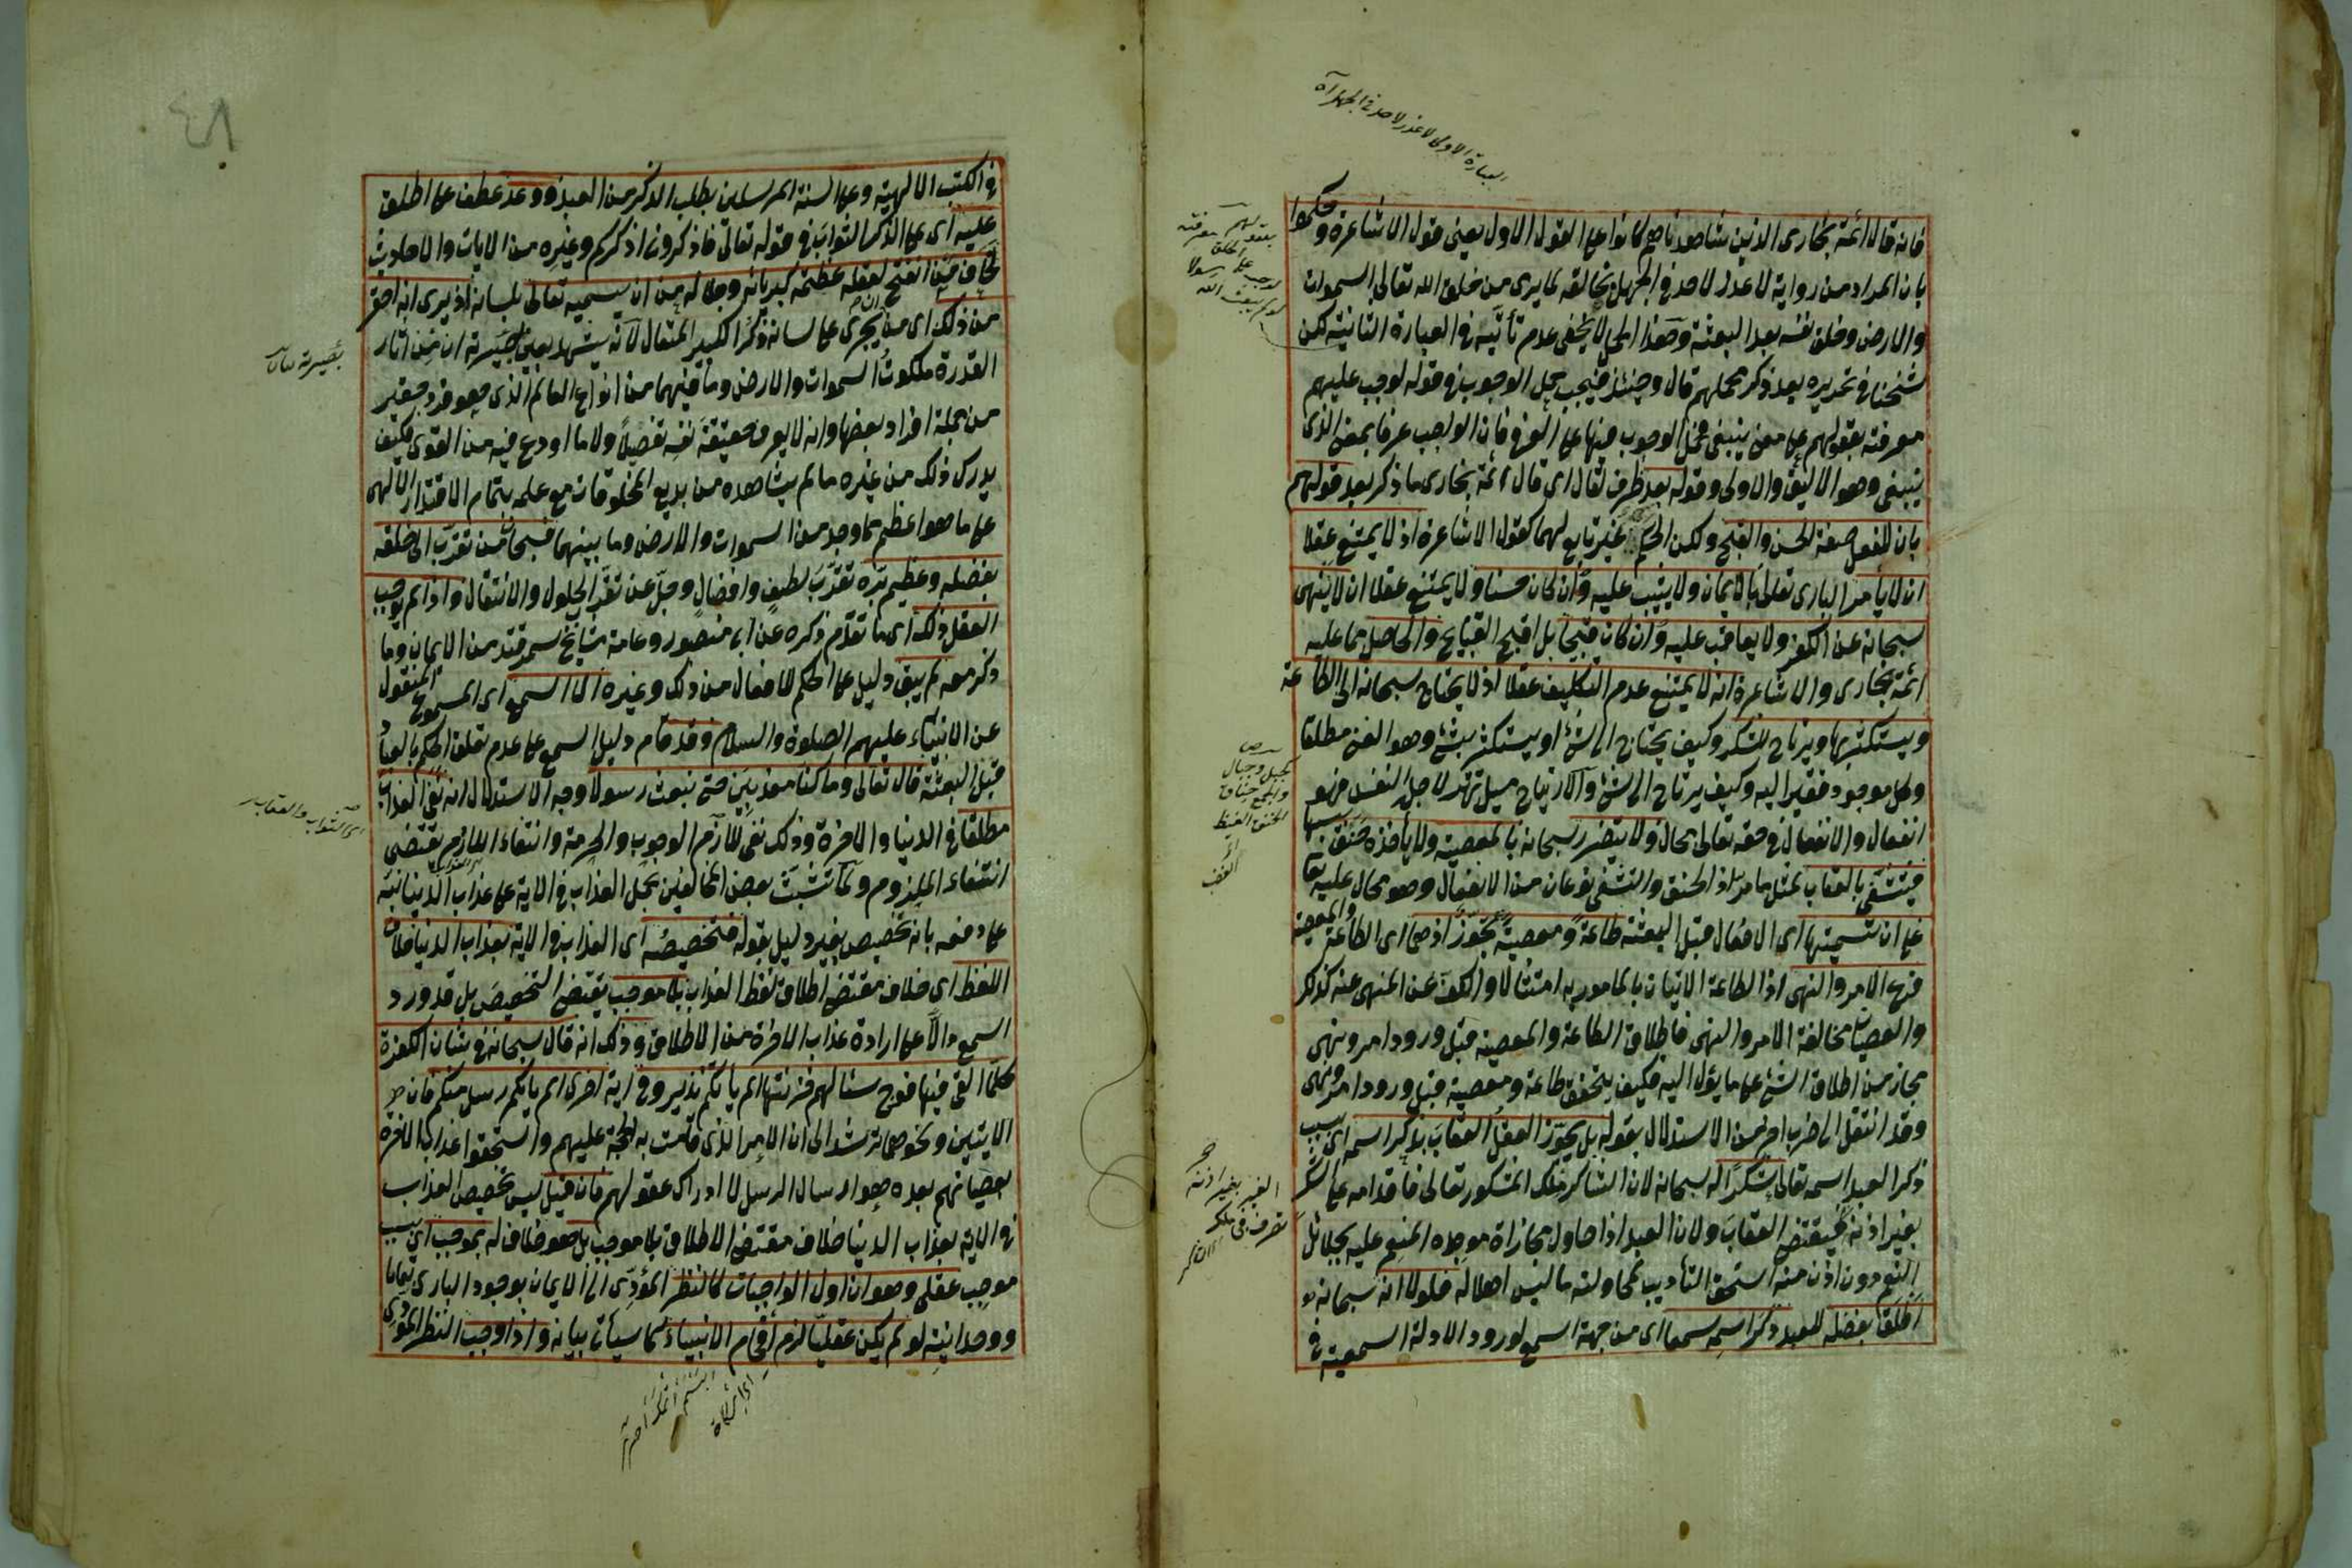 العبارة الاولى لا عذر لاحد في الجهل آه
فانه قال ائمة بخارى الذين شاهدناهم كانوا على القول الاول يعنى قول الاشاعرة وحكموا
بان المراد من رواية لا عذر لاحد في الجهل بخالقه لما يرى من خلق الله تعالى السموات
والارض وخلق نفسه بعد البعثة وهذا الحمل لا يخفى عدم تأتيه في العبارة الثانية لكن
شيخنا في تحريره بعد ذكر محملهم قال وحينئذ فيجب حمل الوجوب في قوله لوجب عليهم
معرفته بعقولهم على معنى ينبغى فحمل الوجوب فيها على العرفى فان الواجب عرفا بمعنى الذى
ينبغى وهو الاليق والاولى وقوله بعد ظرف لقال اى قال ائمة بخارى ما ذكر بعد قولهم
بان للفعل صفة الحسن والقبح ولكن الحكم غير تابع لهما كقول الاشاعرة اذ لا يمتنع عقلا
ان لا يأمر البارى تعالى بالايمان ولا يثيب عليه وان كان حسنا ولا يمتنع عقلا ان لا ينهى
سبحانه عن الكفر ولا يعاقب عليه وان كان قبيحا بل اقبح القبايح والحاصل مما عليه
ائمة بخارى والاشاعرة انه لا يمتنع عدم التكليف عقلا اذ لا يحتاج سبحانه الى الطاعة
ويستكثر بها ويرتاح للشكر وكيف يحتاج الى شئ او يستكثر بشئ وهو الغنى مطلقا
وكل موجود فقير اليه وكيف يرتاح الى شئ والارتياح ميل تهتز لاجله النفس فهو
انفعال والانفعال في حقه تعالى محال ولا يتضرر سبحانه بالمعصية ولا يأخذه حنق بسببها
فيتشفى بالعقاب بمثل ما مر اذ الحنق والتشفى نوعان من الانفعال وهو محال عليه تعالى
على ان تسميتها اى الافعال قبل البعثة طاعة ومعصية تجوز اذ هى اى الطاعة والمعصية
فرع الامر والنهى اذ الطاعة الاتيان بالمامور به امتثالا والكف عن المنهى عنه كذلك
والعصيان مخالفة الامر والنهى فاطلاق الطاعة والمعصية قبل ورود امر ونهى
مجاز من اطلاق الشئ على ما يؤل اليه فكيف يتحقق طاعة ومعصية قبل ورود امر ونهى
وقد انتقل الى ضرب اخر من الاستدلال بقوله بل يجوز العقل العقاب بذكر اسمه اى بسبب
ذكر العبد اسمه تعالى شكرا له سبحانه لان الشاكر ملك المشكور تعالى فاقدامه على الشكر
بغير اذنه فيقتضى العقاب ولان العبد اذا حاول مجازاة موجده المنعم عليه بجلائل
النعم دون اذن منه استحق التأديب لمحاولته ما ليس اهلا له فلولا انه سبحانه
اطلق بفضله للعبد ذكر اسمه سمعا اى من جهة السمع لورود الادلة السمعية في
كجبل وجبال
الحنق الغيظ
الغير بغير اذنه
تصرف في ملك
٤٨
في الكتب الالهية وعلى السنة المرسلين بطلب الذكر من العبد ووعد عطف على اطلق
عليه اى على الذكر الثواب في قوله تعالى فاذكرونى اذكركم وغيره من الايات والاحاديث
لخاف من انفتح لعقله عظمة كبريائه وجلاله من ان يسميه تعالى بلسانه اذ يرى انه احقر
من ذلك اى من ان يجرى على لسانه ذكر الكبير المتعال لانه يشهد بعين بصيرته ان من آثار
القدرة ملكوت السموات والارض وما فيهما من انواع العالم الذى هو فرد حقير
من جملة افراد بعضها وانه لا يعرف حقيقة نفسه تفصيلا ولا ما اودع فيه من القوى فكيف
يدرك ذلك من غيره ما لم يشاهده من بديع المخلوقات مع علمه بتمام الاقتدار الالهى
على ما هو اعظم مما وجد من السموات والارض وما بينهما فسبحان من تقرب الى خلقه
بفضله وعظيم بره تقرب لطف وافضال وجل عن تقرب الحلول والانتقال واذا لم يوجب
العقل ذلك اى ما تقدم ذكره عن ابى منصور وعامة مشايخ سمرقند من الايمان وما
ذكر معه لم يبق دليل على الحكم للافعال من ذلك وغيره الا السمع اى المسموع المنقول
عن الانبياء عليهم الصلوة والسلام وقد قام دليل السمع على عدم تعلق الحكم بالعباد
قبل البعثة قال تعالى وما كنا معذبين حتى نبعث رسولا وجه الاستدلال انه نفى العذاب
مطلقا في الدنيا والاخرة وذلك نفى للازم الوجوب والحرمة وانتفاء اللازم يقتضى
انتفاء الملزوم ولما تشبث بعض المخالفين بحمل العذاب في الاية على عذاب الدنيا نبه
على دفعه بانه تخصيص بغير دليل بقوله فتخصيصه اى العذاب في الاية بعذاب الدنيا خلاف
اللفظ اى خلاف مقتضى اطلاق لفظ العذاب بلا موجب يقتضى التخصيص بل قد ورد
السمع دالا على ارادة عذاب الاخرة من الاطلاق وذلك انه قال سبحانه في شان الكفرة
كلما القى فيها فوج سئالهم خزنتها الم ياتكم نذير وفي اية اخرى الم ياتكم رسل منكم فان
الايتين ونحوهما ترشد الى ان الامر الذى قامت به الحجة عليهم واستحقوا عذاب الاخرة
بعصيانهم بعده هو ارسال الرسل لا ادراك عقولهم فان قيل ليس تخصيص العذاب
في الاية بعذاب الدنيا خلاف مقتضى الاطلاق بلا موجب بل هو خلاف له بموجب اى بسبب
موجب عقلى وهو ان اول الواجبات كالنظر المؤدى الى الايمان بوجود البارى تعالى
ووحدانيته لو لم يكن عقليا لزم افحام الانبياء كما سيأتى بيانه واذا وجب النظر المؤدى
اى الثواب والعقاب